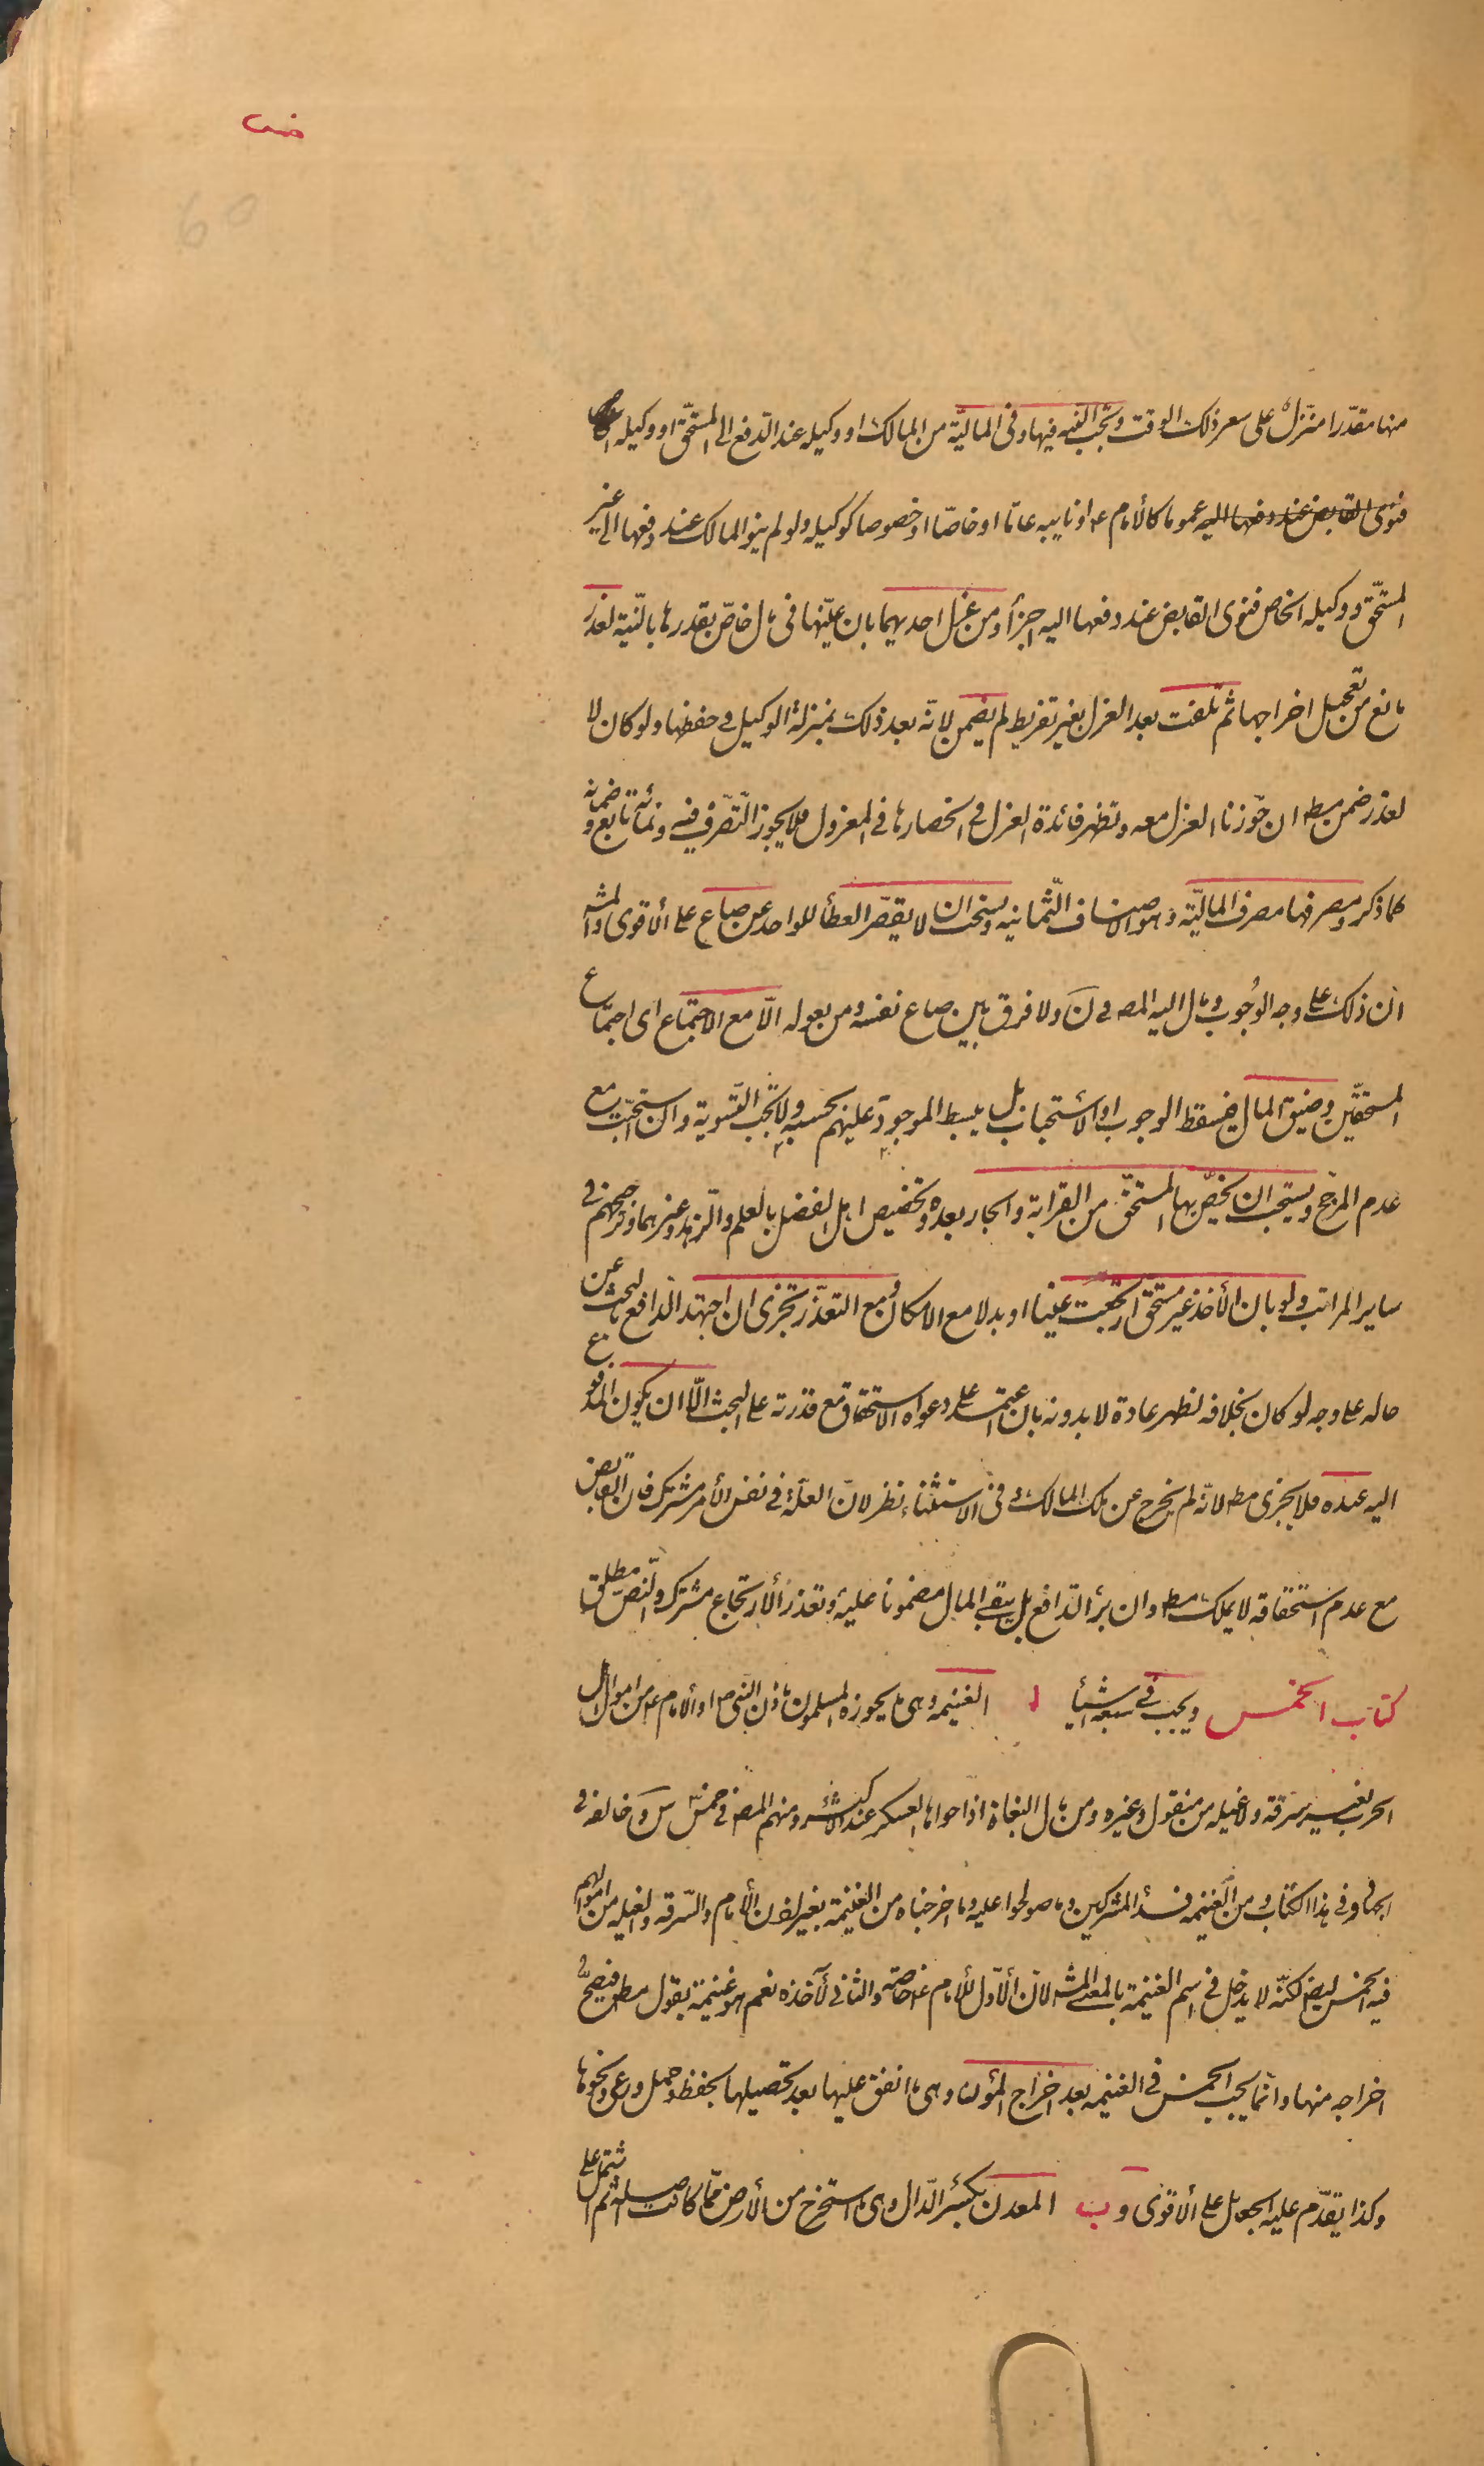 خمس
60
منها مقدّرا منزّل على سعر ذلك الوقت وتجب النيه فيها وفى الماليّة من المالك او وكيله عند الدّفع الى المستحقّ او وكيله
فنوى القابض عند دفعها اليه عموما كالأمام ع او نايبه عامّا او خاصّا او خصوصا كوكيله ولو لم ينو المالك عند دفعها الى غير
المستحّق ووكيله الخاص فنوى القابض عند دفعها اليه اجزأ ومن عزل احديهما بان عيّنها فى مال خاصّ بقدرها بالنّية لعذر
مانع من تعجيل اخراجها ثم تلفت بعد العزل بغير تفريط لم يضمن لانّه بعد ذلك بمنزلة الوكيل فى حفظها ولو كان لا
لعذر ضمن مط ان جوّزنا العزل معه وتظهر فائدة العزل فى انحصارها فى المعزول فلا يجوز التّصّرف فيه ونمائه تابع وضمانه
كما ذكر ومصرفها مصرف الماليّة وهو الاصناف الّثمانيه ويستحب ان لا يقصّر العطأ للواحد عن صاع على الأقوى والمشه
انّ ذلك على وجه الوجُوب ومال اليه المصـ فى ن ولا فرق بين صاع نفسه ومن يعوله الّا مع الاجتماع اى اجتماع
المستحقّين وضيق المال فيسقط الوجوب او الأستحباب بل يبسط الموجود عليهم بحسبه ولا تجب التّسوية وان استحبّت مع
عدم المرجّح ويستحب ان يخصّ بها المستحّق من القرابة والجار بعده وتخصيص اهل الفضل بالعلم والزّهد وغيرهما وترجيحهم فى
ساير المراتب ولو بان الأخذ غير مستحق ارتجعت عينا او بدلا مع الامكان ومع التعذّر تجزى ان اجتهد الدّافع بالبحث عن
حاله على وجه لو كان بخلافه لظهر عادة لا بدونه بان اعتمد على دعواه الاستحقاق مع قدرته على البحث الّا ان يكون المدفوع
اليه عبده فلا يجزى مط لانّه لم يخرج عن ملك المالك وفى الاستثناء نظر لانّ العلّة فى نفس الأمر مشترك فانّ القابض
مع عدم استحقاقه لا يملك مط وان برأ الدّافع بل يبقى المال مضمونا عليه وتعذر الأرتجاع مشترك والنصّ مطلق
كتاب الخمس ويجب فى سبعة اشيأ ا الغنيمه وهى ما يحوزه المسلمون باذن النبى ص او الأمام ع من اموال اهل
الحرب بغير سرقة ولا غيله من منقول وغيره ومن مال البغاة اذا حواها العسكر عند الأكثر ومنهم المصـ فى خمس س وخالف فى
الجهاد وفى هذا الكتاب ومن الغنيمه فدأ المشركين وما صولحوا عليه وما اخرجناه من الغنيمة بغير اذن الأمام والسّرقه والغيله من اموالهم
فيه الخمس ايضا لكنّه لا يدخل فى اسم الغنيمة بالمعنى المشه لانّ الأوّل للأمام ع خاصّه والثانى لآخذه نعم هو غنيمة بقول مط فيصحّ
اخراجه منها وانّما يجب الخمس فى الغنيمه بعد اخراج المؤن وهى ما انفق عليها بعد تحصيلها بحفظ وحمل ورعى ونحوها
وكذا يقدّم عليه الجعايل على الأقوى و ب المعدن بكسر الدّال وهى ما استخرج من الأرض ممّا كانت اصله ثم اشتمل على